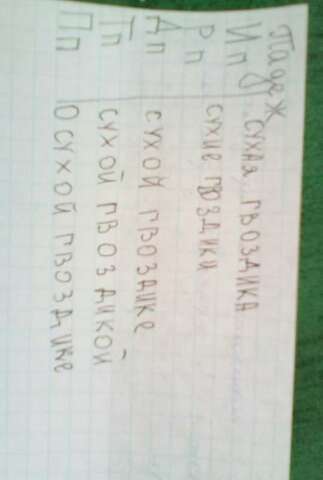 Падеж
Ип сухая гвоздика
Рп сухие гвоздики
Дп сухой гвоздике
Тп сухой гвоздикой
Пп О сухой гвоздике